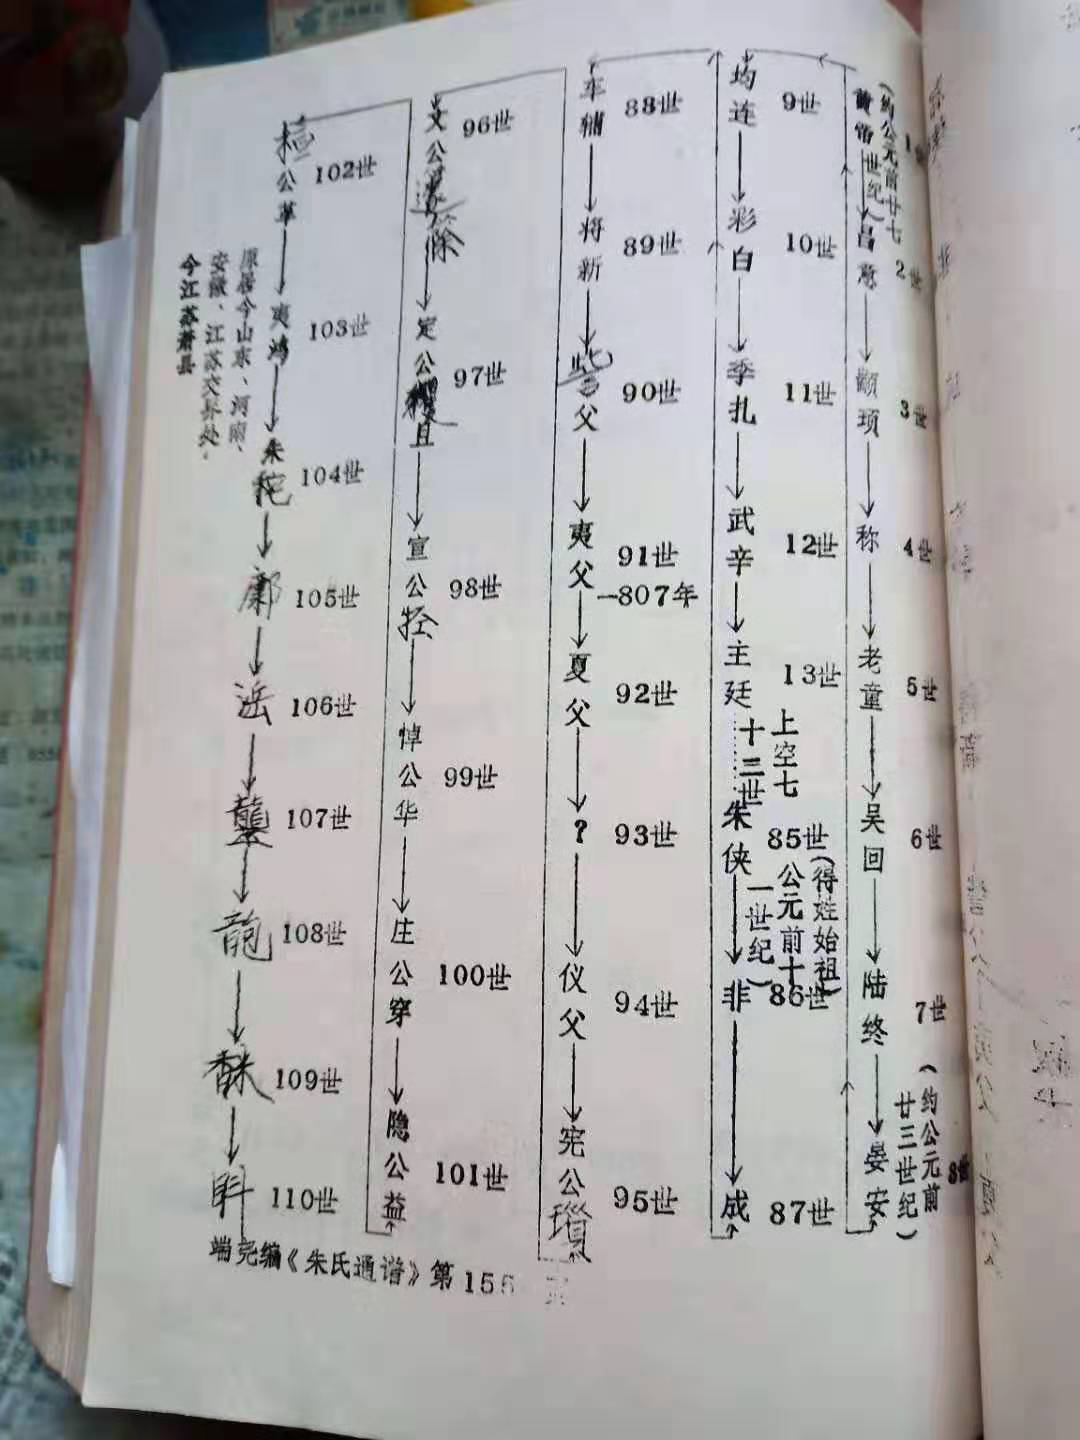 黄帝
1世
(约公元前廿七
世纪)
昌意
2世
颛顼
3世
称
4世
老童
5世
吴回
6世
陆终
7世
晏安
8世
(约公元前
廿三世纪)
均连
9世
彩白
10世
季扎
11世
武辛
12世
主廷
13世
上空七
十二世
朱侠
85世
(得姓始祖)
公元前十
一世纪)
非
86世
成
87世
车辅
88世
将新
89世
訾父
90世
夷父
91世
—807年
夏父
92世
?
93世
仪父
94世
宪公
95世
文公
蘧蒢
96世
定公
貜且
97世
宣公
牼
98世
悼公华
99世
庄公穿
100世
隐公益
101世
桓公革
102世
夷鸿
103世
朱
104世
105世
106世
107世
108世
109世
110世
原居今山东、河南、
安徽、江苏交界处,
今江苏萧县
端完编《朱氏通谱》第155